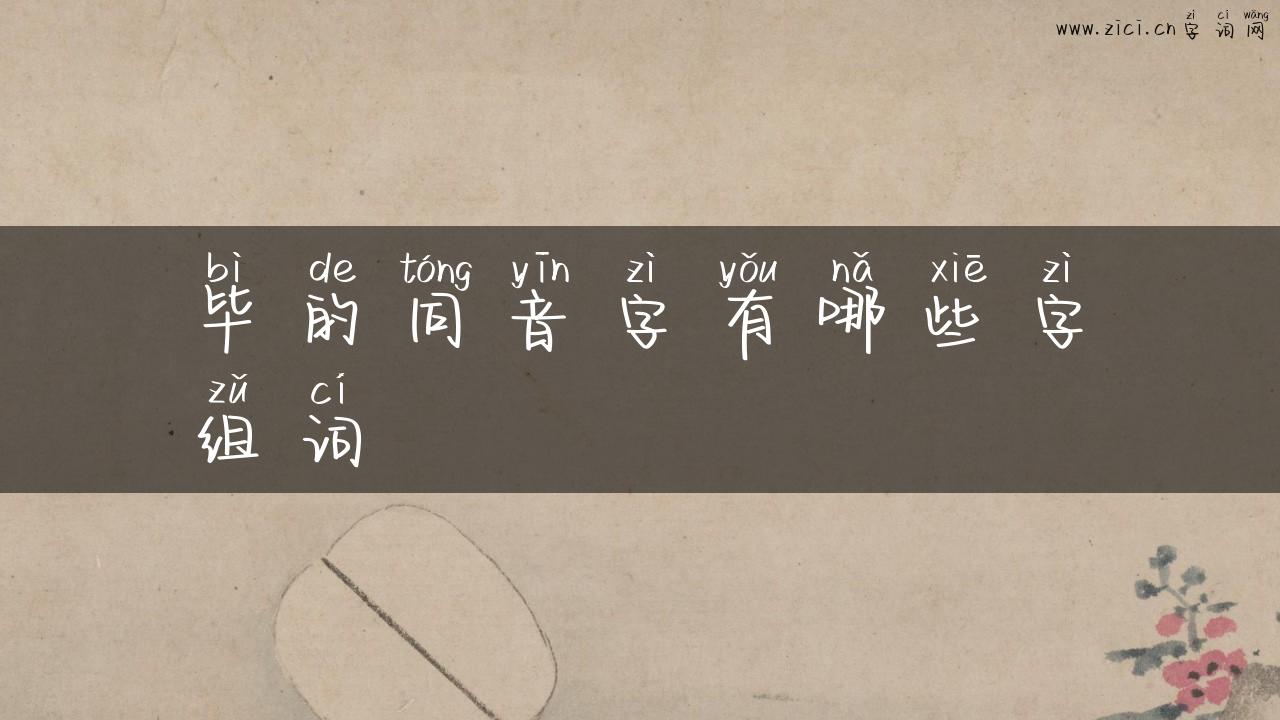 zì cí wǎng
www.zici.cn字词网
bì de tóng yīn zì yǒu nǎ xiē zì
毕的同音字有哪些字
zǔ cí
组词